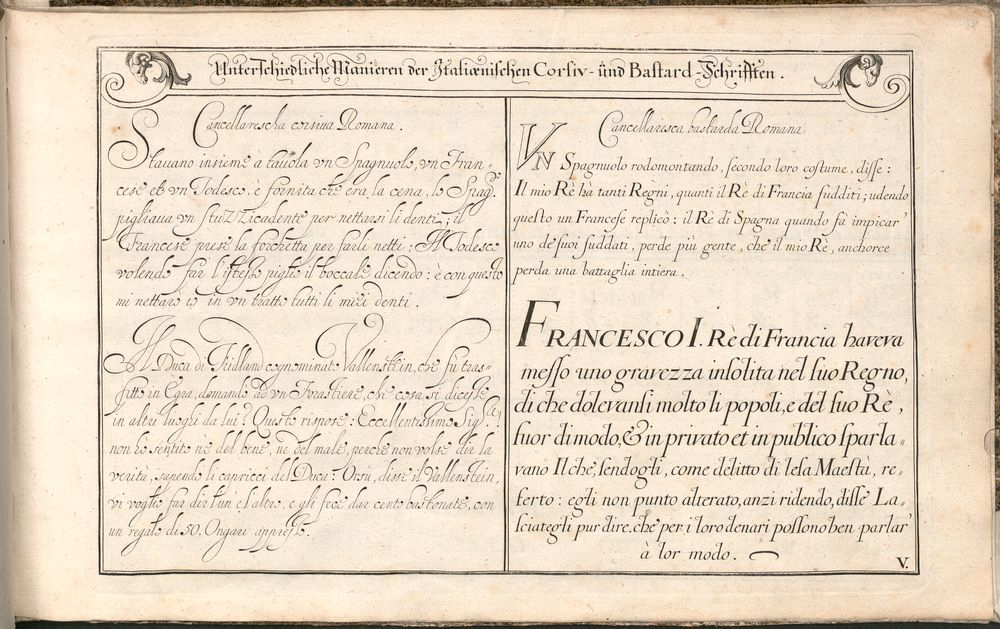 Unterschiedliche Manieren der Italiænischen Corsiv- und Bastard-Schrifften.
Cancellarescha corsiua Romana.
Stauano insieme à tauola vn Spagnuolo, vn Fran-
cese et vn Todesco, è fornita che era la cena, lo Spag.
pigliaua vn stuzzicadente per nettarsi li denti; il
Francese prese la forchetta per farli netti; Il Todesco
volendo far l'istesso piglio il boccale dicendo: è con questo
mi nettaro io in vn tratto tutti li miei denti.
Il Duca di Fridland cognominato Vallenstein, che fù tras-
fitto in Egra, domando ad vn Forastiere, che cosa si dicesse
in altri luoghi da lui? Questo rispose: Eccellentissimo Sig.re
non ho sentito nè del bene, ne del male, perche non volse dir la
verità, sapendo li capricci del Duca: Orsù, disse il Vallenstein,
vi voglio far dir l'un è l'altro, e gli fece dar cento bastonate, con
un regalo di 50. Ongari appresso.
Cancellaresca bastarda Romana
VN Spagnuolo rodomontando, secondo loro costume, disse:
Il mio Rè hà tanti Regni, quanti il Rè di Francia sudditi; udendo
questo un Francese replicò: il Rè di Spagna quando fà impicar
uno de suoi suddati, perde più gente, che il mio Rè, anchorce
perda una battaglia intiera.
FRANCESCO I. Rè di Francia haveva
messo uno gravezza insolita nel suo Regno,
di che dolevansi molto li popoli, e del suo Rè,
fuor di modo, & in privato et in publico sparla-
vano Il che sendogli, come delitto di lesa Maestà, re-
ferto: egli non punto alterato, anzi ridendo, disse La-
sciategli pur dire, che per i loro denari possono ben parlar
à lor modo.
V.